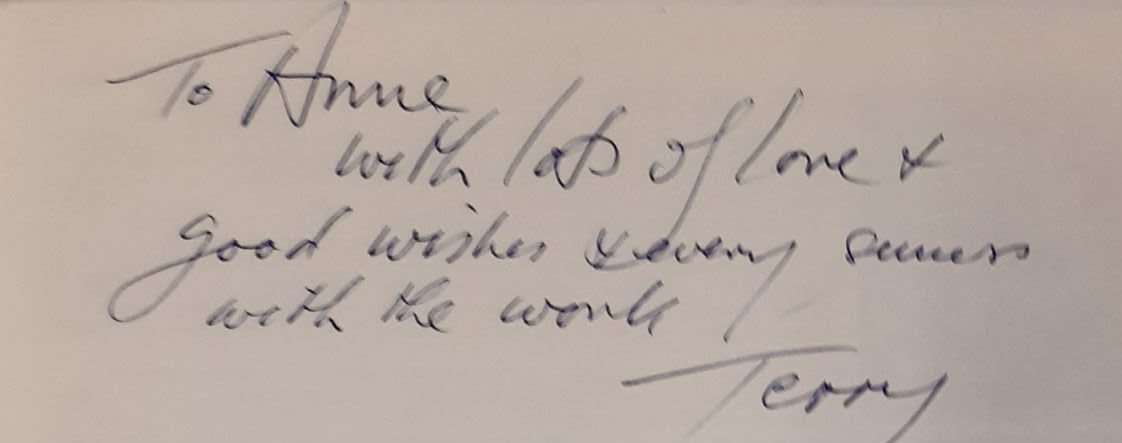 To Anne
with lots of love &
good wishes & every success
with the work
Terry